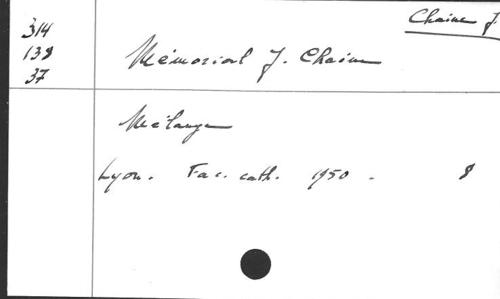 Chaine J.
314
138
37
Mémorial J. Chaine
Mélanges
Lyon. Fac. cath. 1950. 8